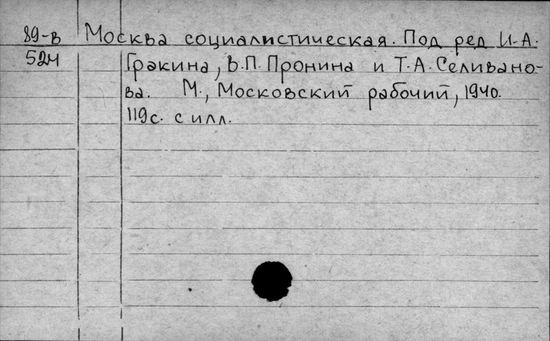 89-в Москва социалистическая. Под ред И.А.
524 Гракина, В.П. Пронина и Т.А. Селивано-
ва. М., Московский рабочий, 1940.
119с. с илл.